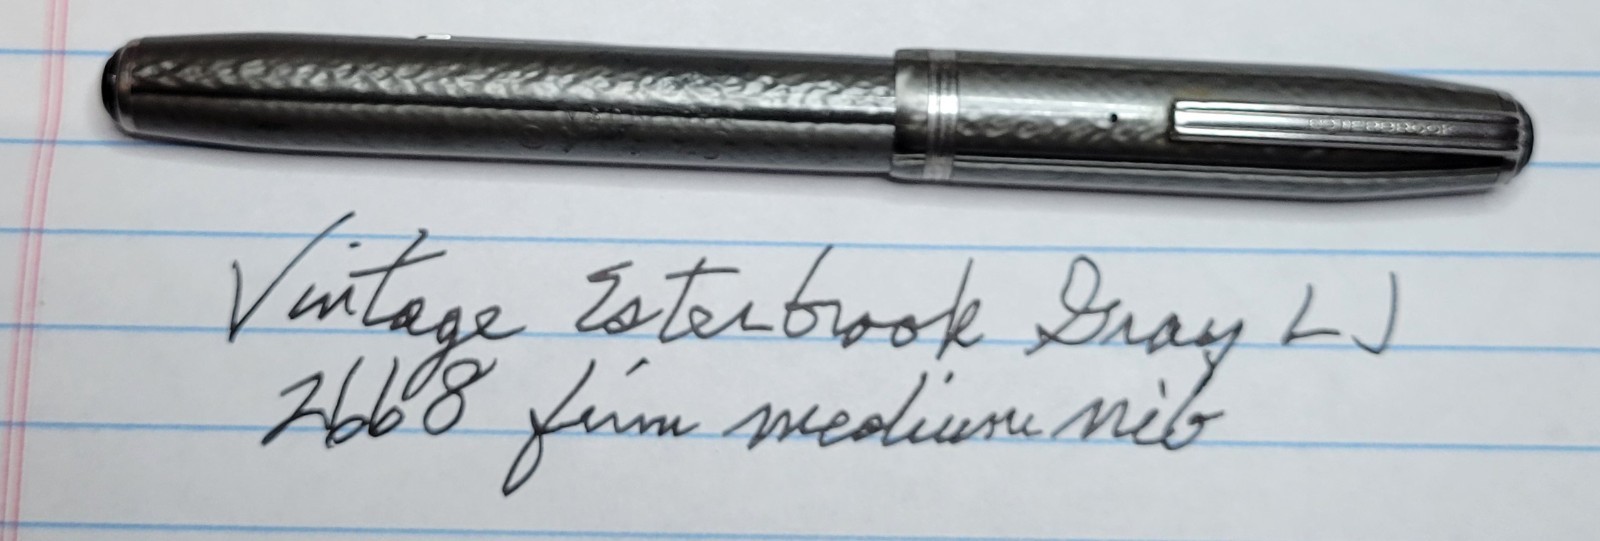 ESTERBROOK
Vintage Esterbrook Gray LJ
2668 firm medium nib